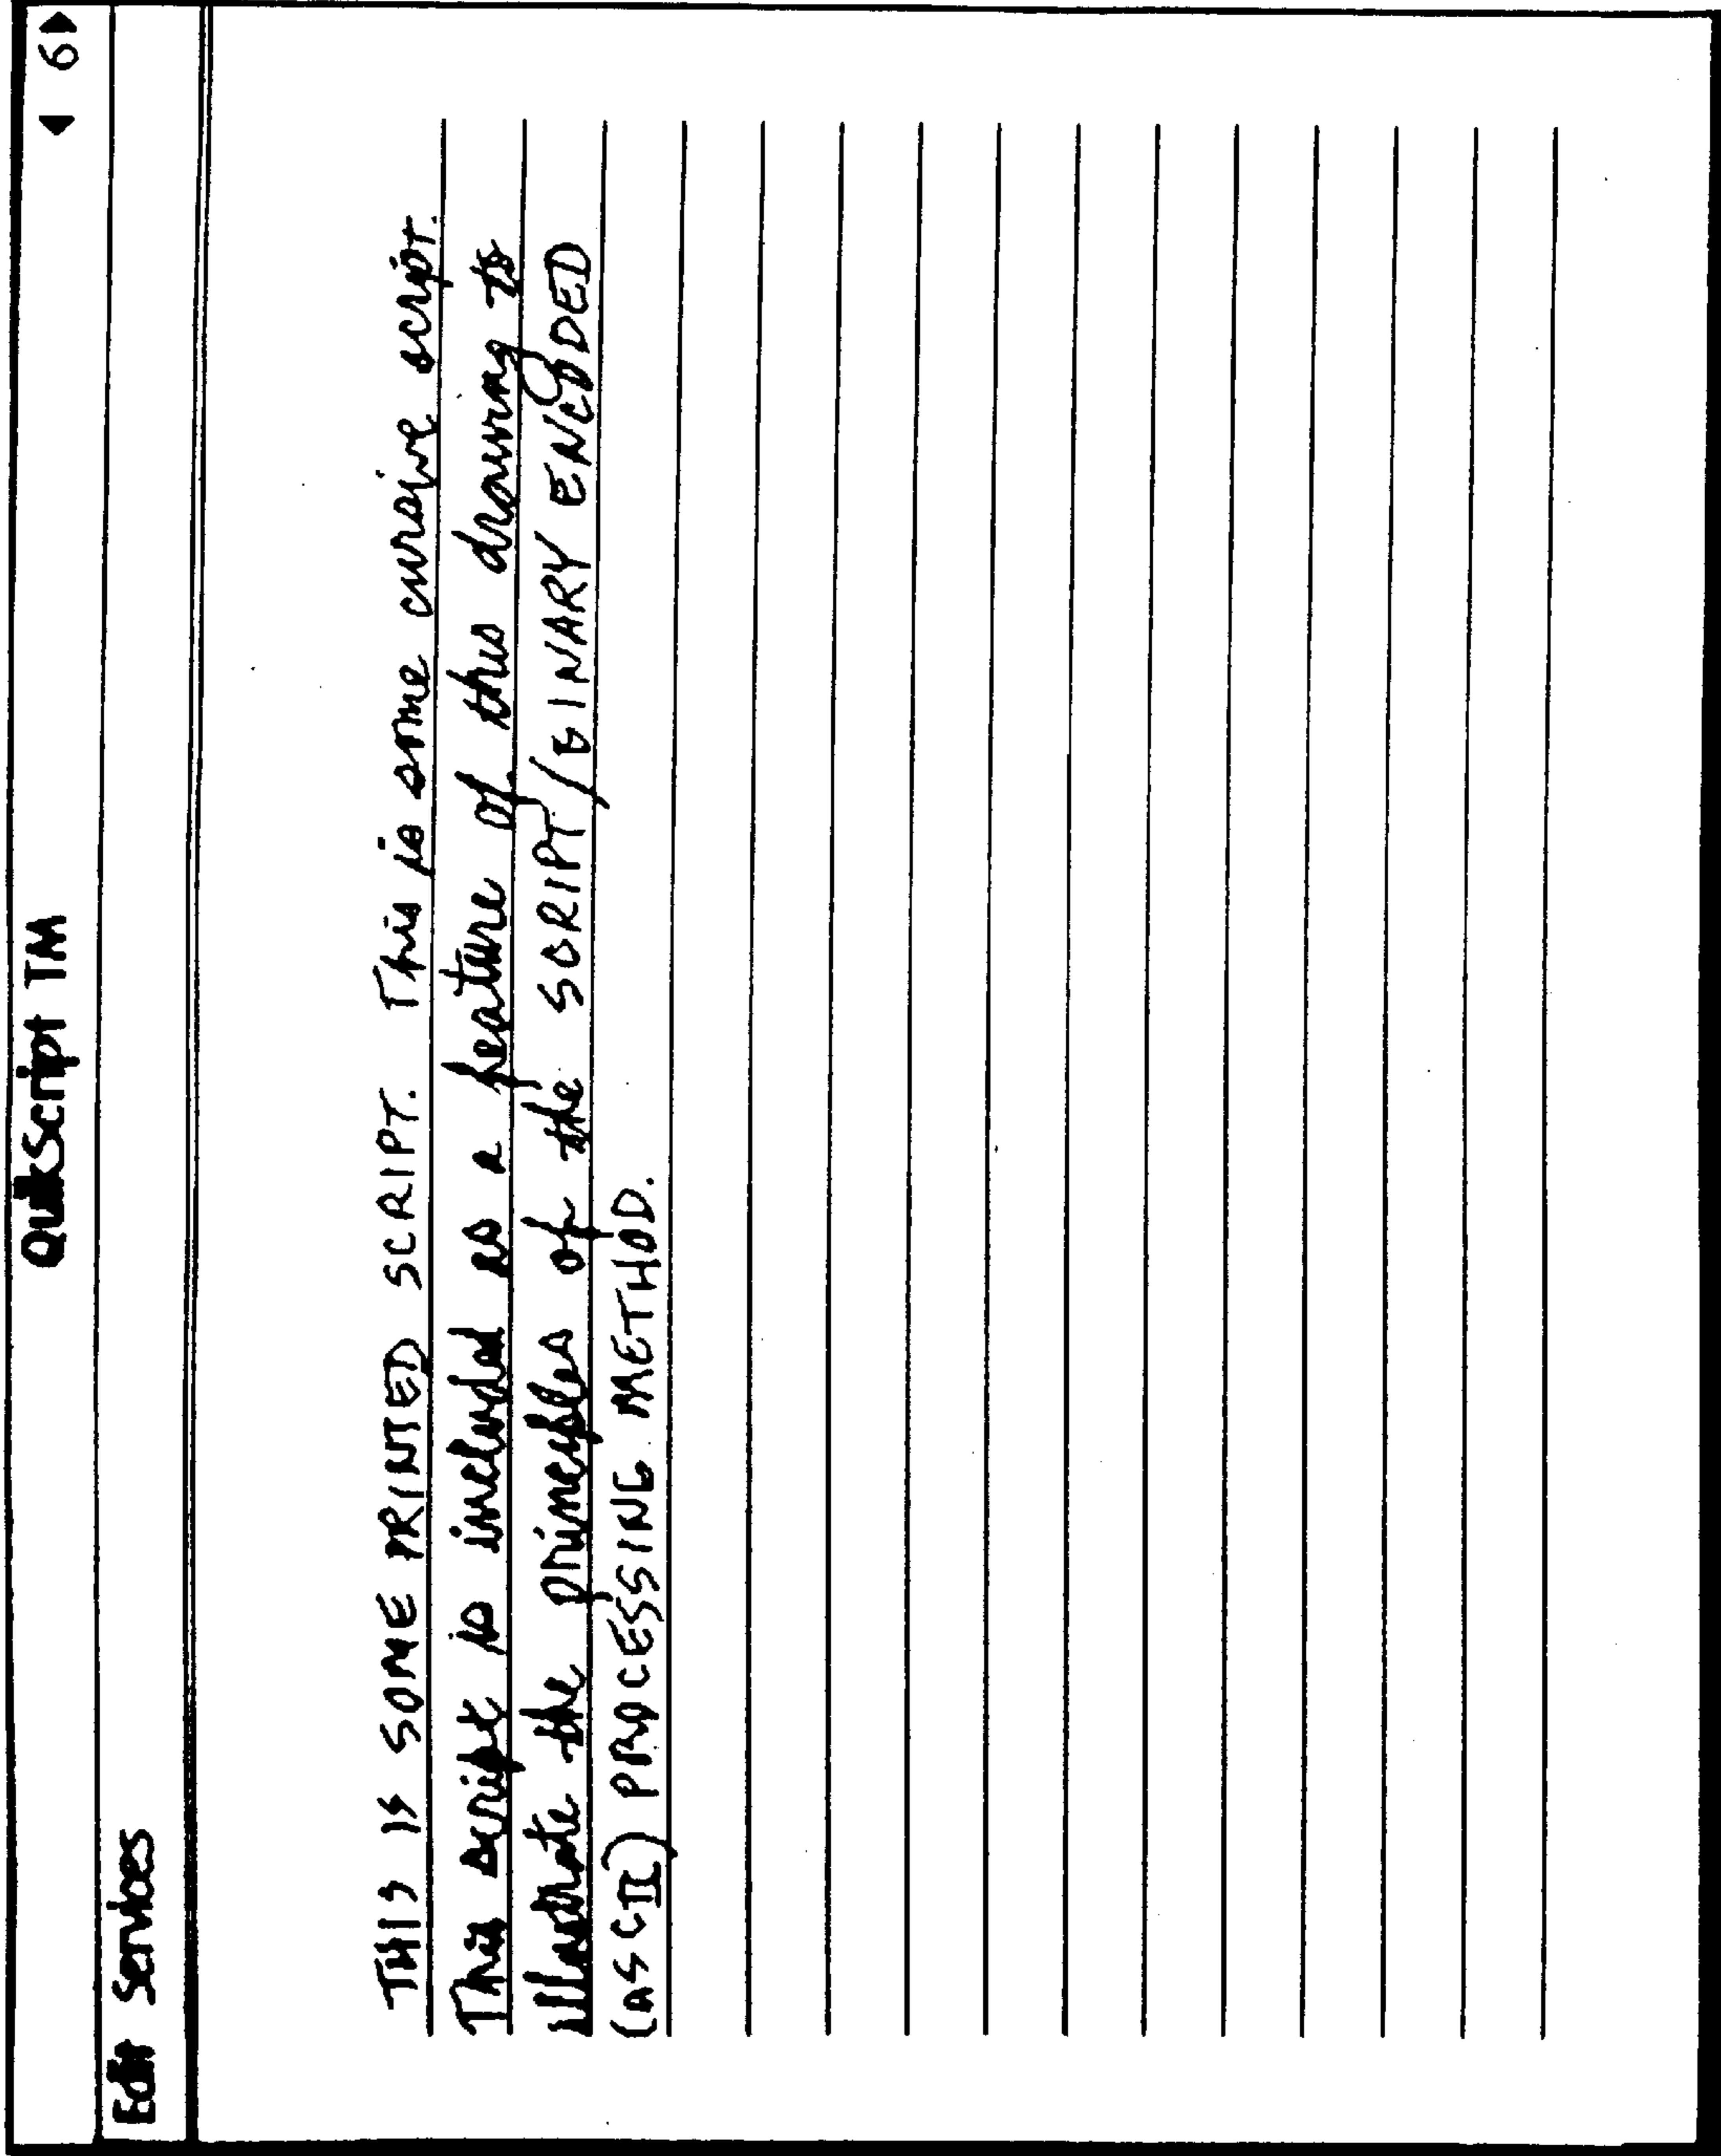 QuikScript TM ◀ 6 ▶
Edit Services
THIS IS SOME PRINTED SCRIPT. This is some cursive script.
This script is included as a feature of this drawing to
illustrate the principles of the SCRIPT/BINARY ENCODED
(ASCII) PROCESSING METHOD.